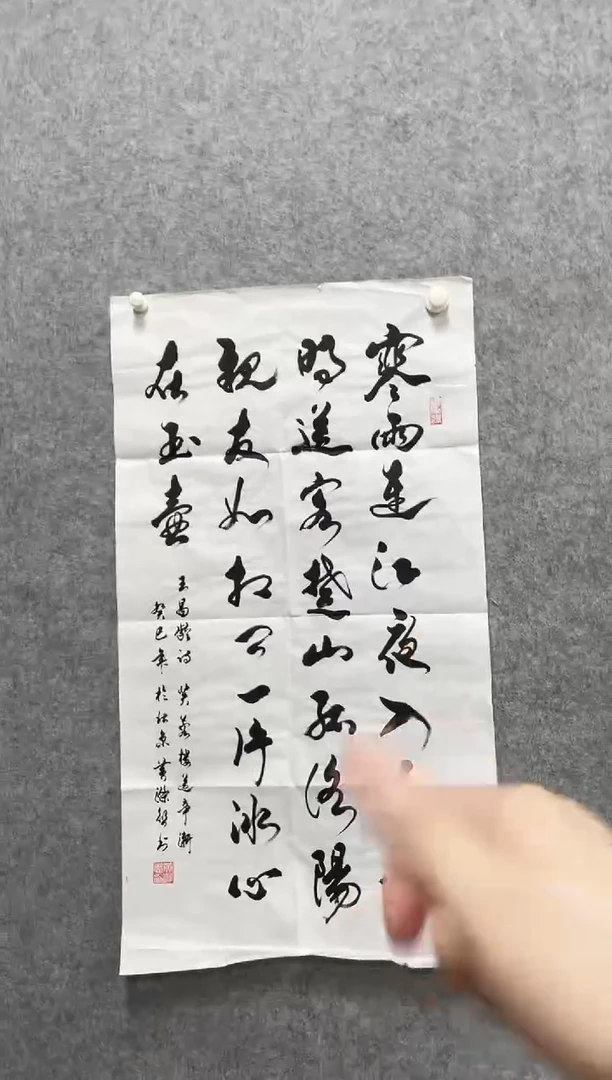 寒雨連江夜入
明送客楚山孤洛陽
親友如相问一片冰心
在玉壺
王昌齡詩 芙蓉樓送辛漸
癸巳年於北京黄